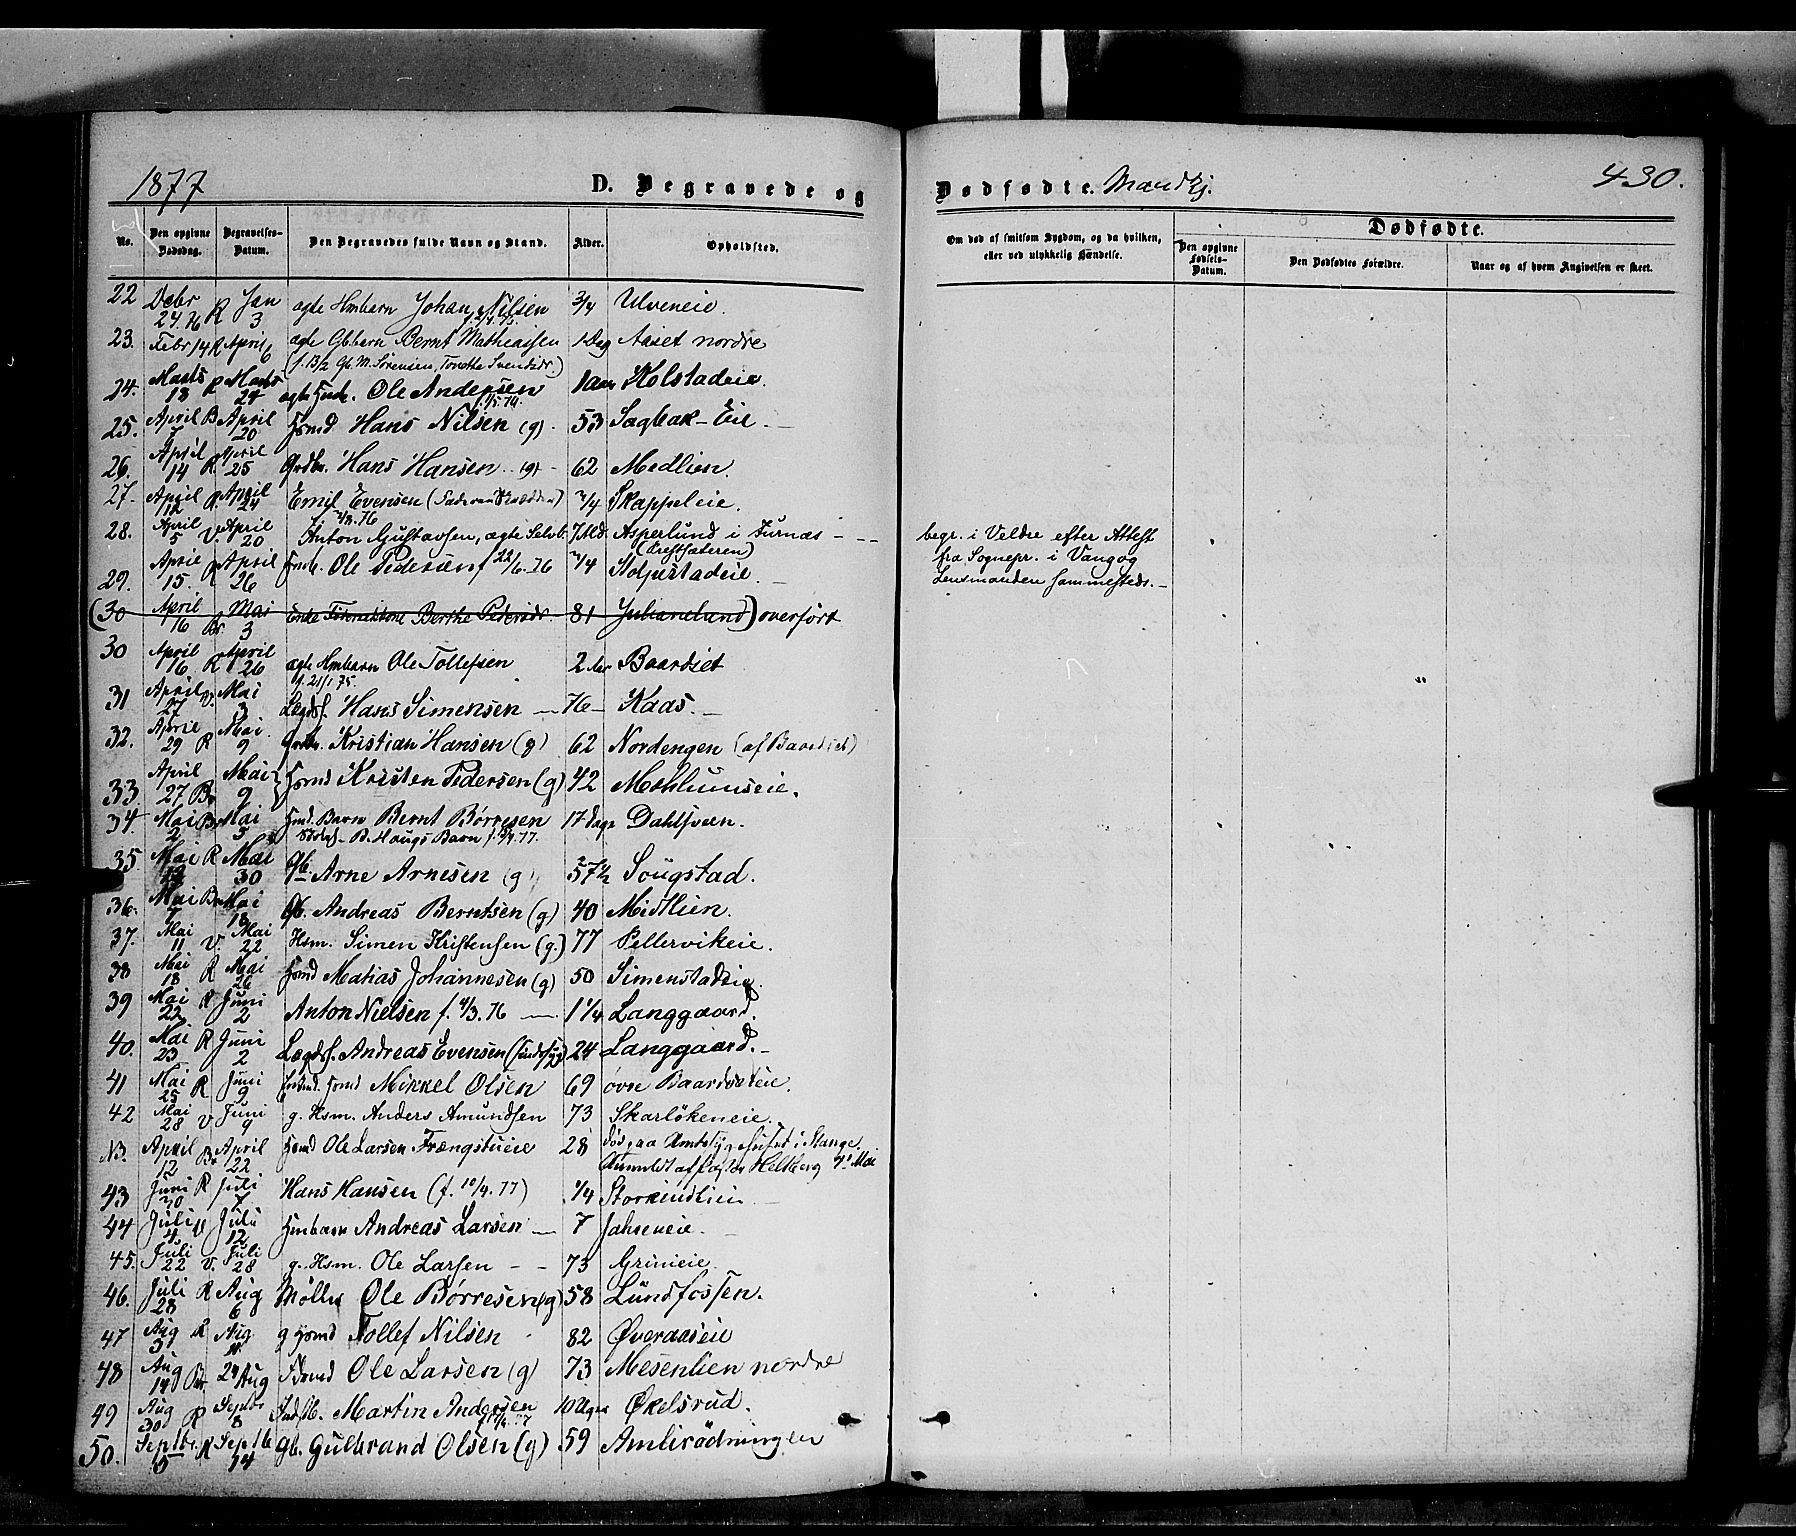 1877
D. Begravede og
Dødfødte. Mandkj.
430.
No.
Den opgivne Dødsdag.
Begravelses-Datum.
Den Begravedes fulde Navn og Stand.
Alder.
Opholdssted.
Om død af smitsom Sygdom, og da hvilken, eller ved ulykkelig Hændelse.
Dødfødte.
Den opgivne Fødsels-Datum.
Den Dødfødtes Forældre.
Naar og af hvem Angivelsen er skeet.
22 Debr 24.76 R Jan 3 ægte Hmbarn Johan Nilsen 3/4 Ulveneie.
23. Febr 14 R April 6 ægte Gbbarn Bernt Mathiassen 1 Dag Aaset nordre
(f. 13/2 Gb. M. Sørensen, Tonette Svendsdr.)
24. Marts 18 R Marts 24 ægte Ole Andersen 1 Aar Kolstadeie.
25. April 7 B April 20 Hsmd Hans Nilsen (g) 53 Sagbak-Eie
26. April 14 R April 25 Grdbr. Hans Hansen (g) 62 Medlien.
27. April 12 R. April 24 Emil Evensen 3/4 Skappeleie.
28. April 5 V. April 20 Anton Gustavsen, ægte Selvb. 7 Md. Asperlund i Furnæs
begr. i Veldre efter Attest
fra Sognepr. i Vang og
Lensmanden sammesteds.
29. April 15. R April 26 Ole Pedersen f 22/6.76 3/4 Stolpestadeie.
(30 April 16 Br. Mai 3 Enke Berthe Pedersdr 81 Julianelund) overført
30 April 16 R April 26 ægte Hmbarn Ole Tollefsen 2 Aar Baardset
f. 21/1 75.
31 April 27 V. Mai 3 Lægdsl. Hans Simensen 76 Kaas.
32. April 29 R Mai 9 Grdbr. Kristian Hansen (g) 62 Nordengen (af Baardset)
33. April 27 Br Mai 9 Hsmd Kristen Pedersen (g) 42 Mohlumseie.
34. Mai 2 Br Mai 5 Hmd. Barn Bernt Børresen 17 Dage Dahlsveen.
B. Haugs Barn
35. Mai 12 R Mai 30 Gb. Arne Arnesen (g) 57 1/2 Sougstad.
36. Mai 7 Br Mai 18 Gb. Andreas Berntsen (g) 40 Midtlien.
37. Mai 11 V. Mai 22 Hsm. Simen Kristensen (g.) 77 Pellervikeie.
38 Mai 18 R Mai 26 Hsmd Matias Johannesen (g) 50 Simenstadeie.
39 Mai 22 R Juni 2 Anton Nielsen f. 4/3.76 1 1/4 Langgaard.
40. Mai 23 R Juni 2 Lægdsl. Andreas Evensen 24 Langgaard.
41 Mai 25 R Juni 9 Hsmd Mikkel Olsen 69 øvre Baardseteie.
42 Mai 28 V Juni 9 g. Hsm. Anders Amundsen 73 Skarløkeneie.
NB. April 12 Br April 22 Hsmd Ole Larsen Frængstueie 28 Død paa Amtssygehuset i Stange.
Anmeldt af Pastor Heltberg 4de Mai
43 Juni 30 R Juli 7 Hans Hansen (f. 10/4.77) 1/4
44 Juli 4 V Juli 12 Hmbarn Andreas Larsen 7 Jahseneie.
45. Juli 22 V. Juli 28 g. Hsm. Ole Larsen 73 Grimeie.
46. Juli 28 R Aug 6 Møller Ole Børresen (g) 58 Lundfossen.
47 Aug 3 R Aug 11 g Hsmd Tollef Nilsen 82 Øveraaseie
48 Aug 14 Br 24 Aug Hsmd Ole Larsen (g) 73 Mesenlien nordre
49 Aug 30 R Septbr 8 Martin Andersen 10 Uger Økelsrud.
50. Septbr. R Septb 14 Gb. Gulbrand Olsen (g) 59 Amlirødningen